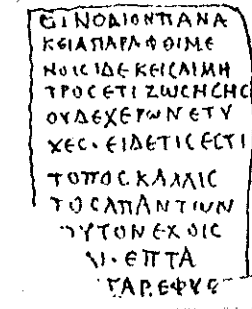 ΕΙΝΟΔΙΟΝΠΑΝΑ
ΚΕΙΑΠΑΡΑΦΘΙΜΕ
ΝΟΙCΙΔΕΚΕΙCΑΙΜΗ
ΤΡΟCΕΤΙΖΩCΗCΗC
ΟΥΔΕΧΕΡΩΝΕΤΥ
ΧΕC·ΕΙΔΕΤΙCΕCΤΙ
ΤΟΠΟCΚΑΛΛΙC
ΤΟCΑΠΑΝΤΙΩΝ
ΥΤΟΝΕΧΟΙC
Ν·ΕΠΤΑ
ΓΑΡ.ΕΦΥC